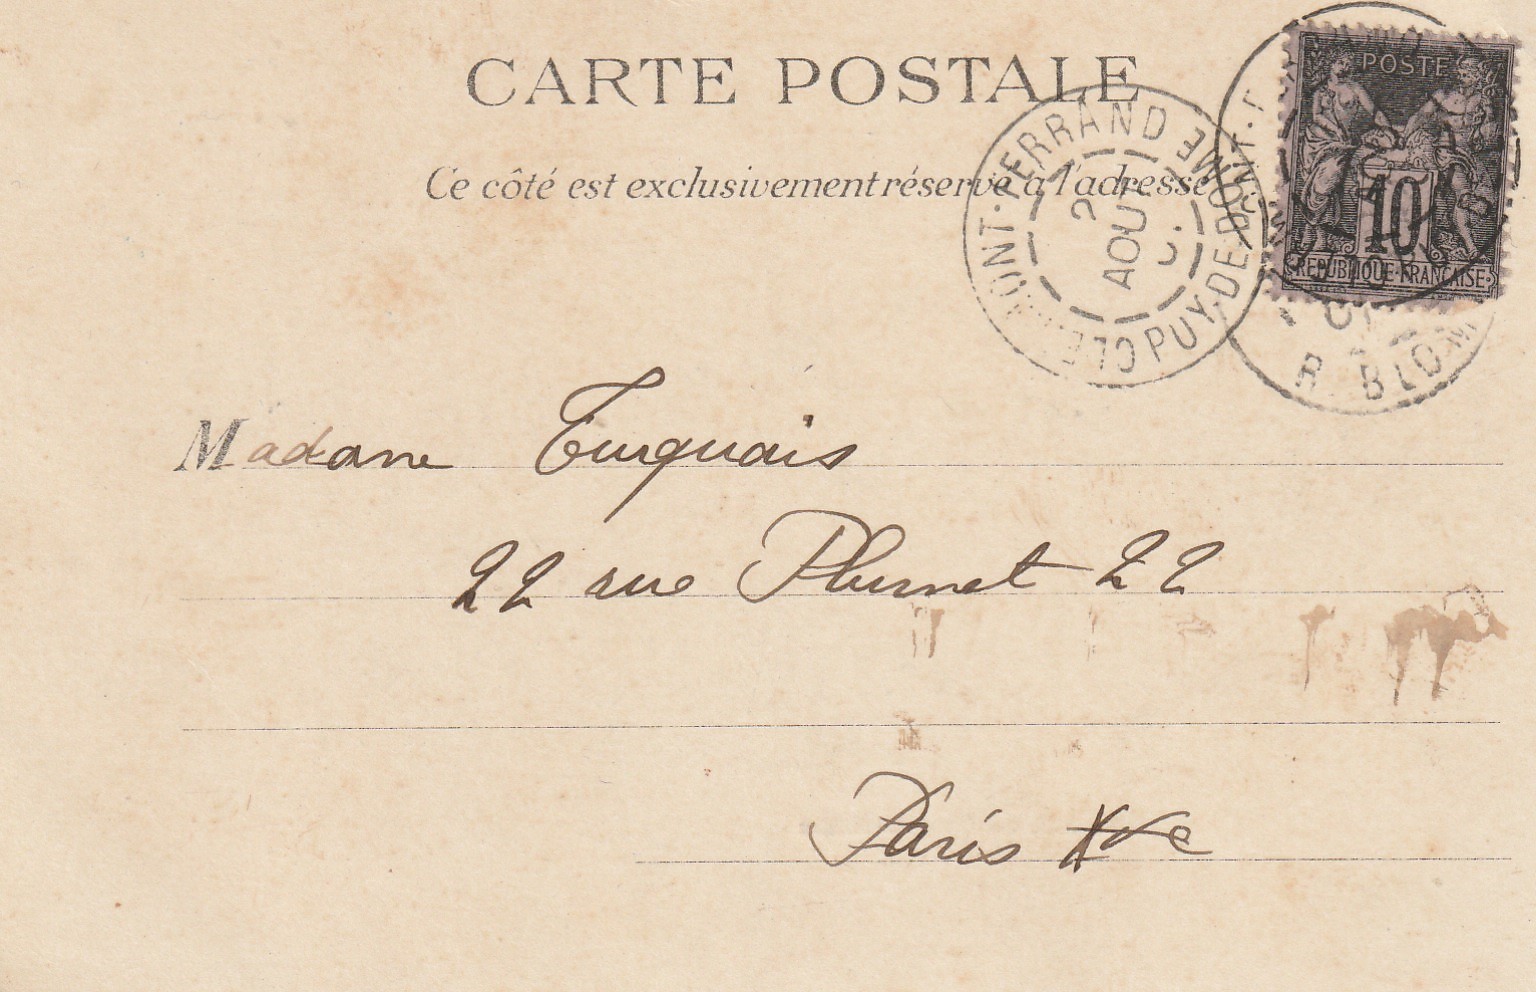 CARTE POSTALE
Ce côté est exclusivement réservé à l'adresse
POSTE
10
REPUBLIQUE FRANÇAISE
CLERMONT-FERRAND PUY-DE-DOME
2
AOUT
Madame Turquais
22 rue Plumet 22
Paris XVe